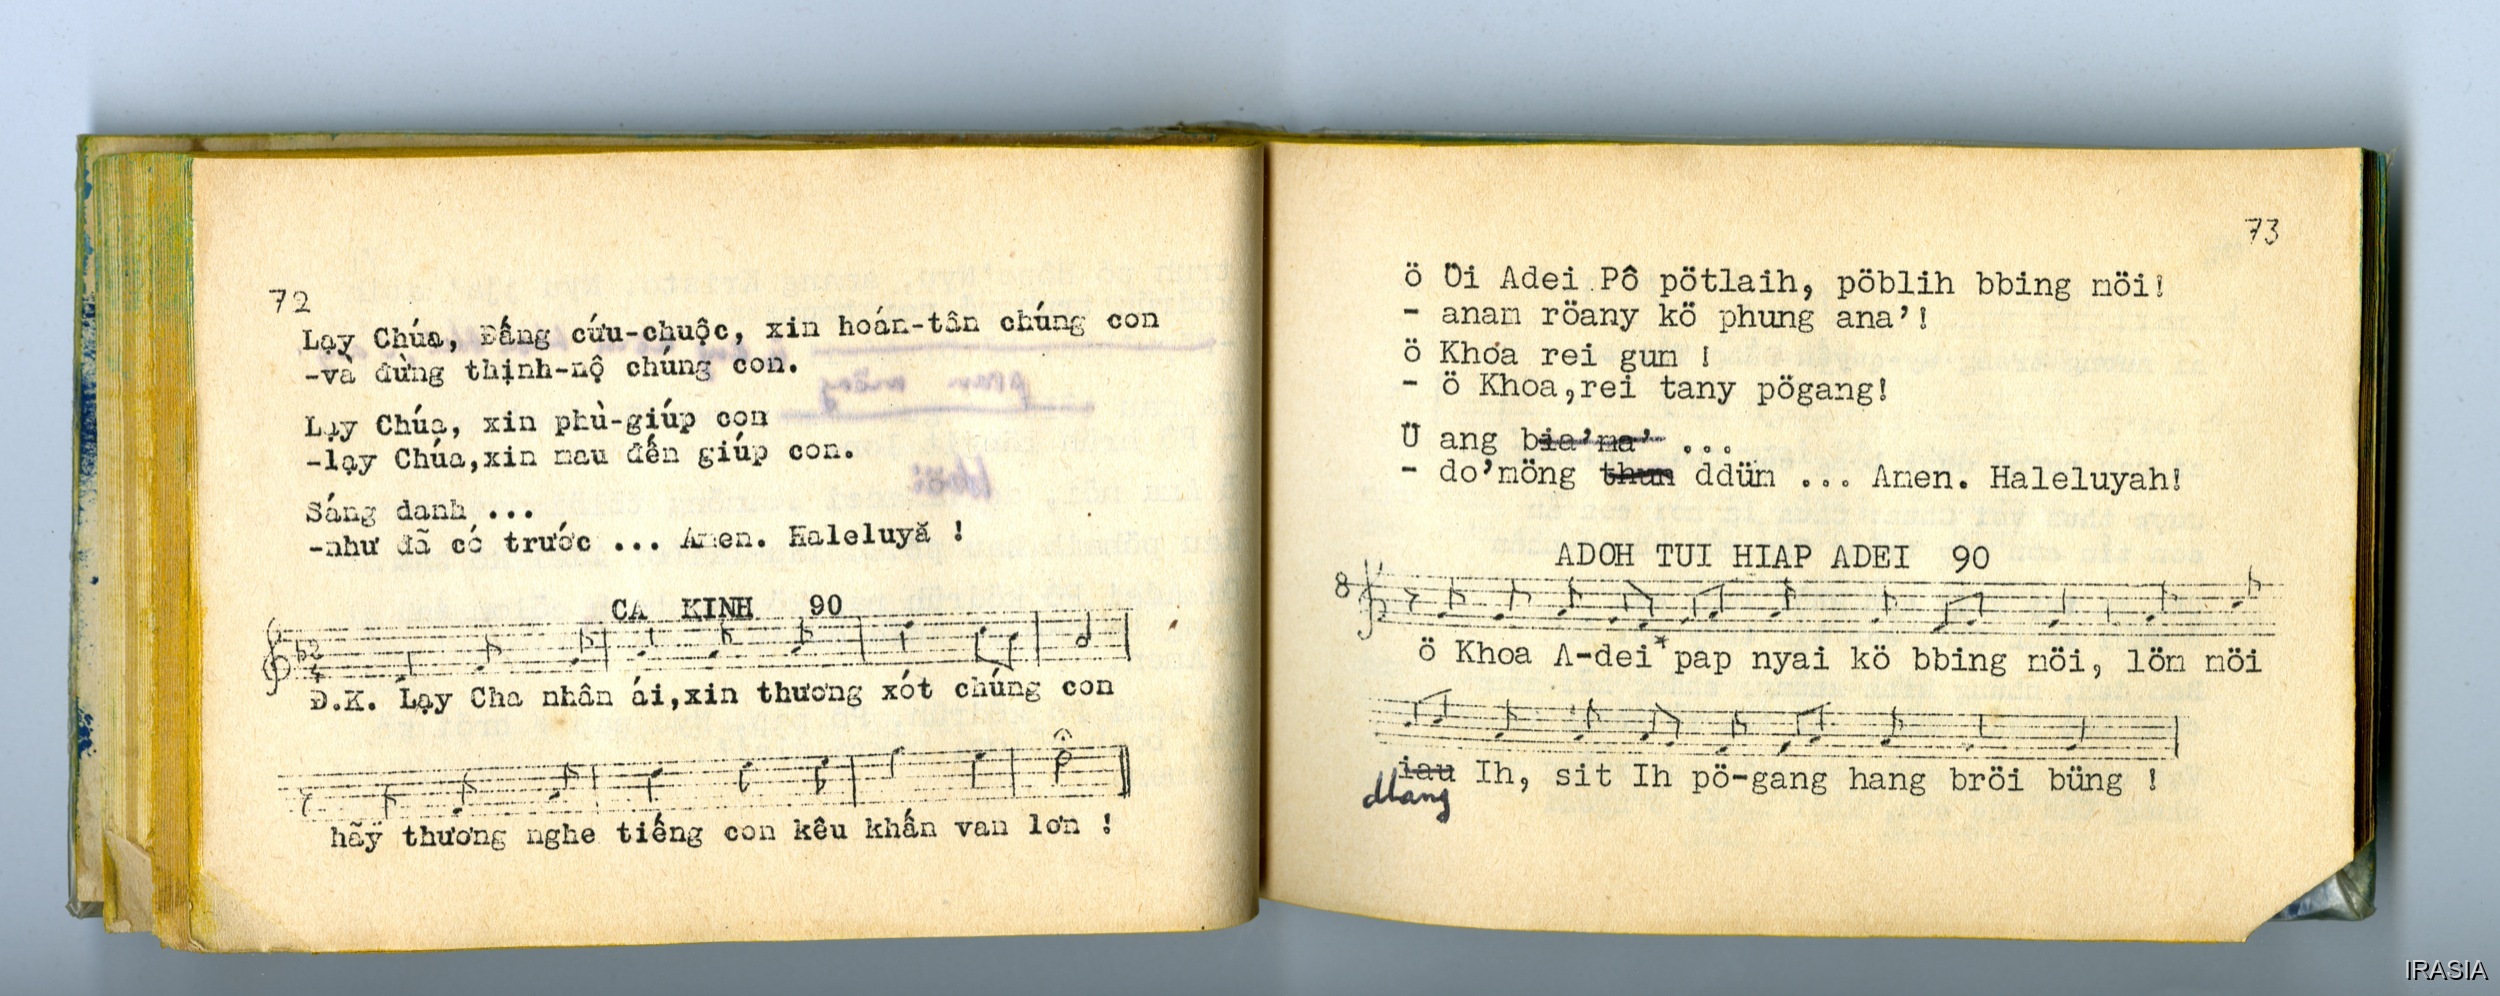 72
Lạy Chúa, Đấng cứu-chuộc, xin hoán-tân chúng con
-và đừng thịnh-nộ chúng con.
Lạy Chúa, xin phù-giúp con
-lạy Chúa,xin mau đến giúp con.
Sáng danh ...
-như đã có trước ... Amen. Haleluyă !
CA KINH 90
Đ.K. Lạy Cha nhân ái,xin thương xót chúng con
hãy thương nghe tiếng con kêu khấn van lơn !
73
ö Öi Adei Pô pötlaih, pöblih bbing möi!
- anam röany kö phung ana'!
ö Khoa rei gum !
- ö Khoa,rei tany pögang!
Ü ang bia'ma' ...
- do'möng thun ddüm ... Amen. Haleluyah!
ADOH TUI HIAP ADEI 90
8
ö Khoa A-dei* pap nyai kö bbing möi, löm möi
iau Ih, sit Ih pö-gang hang bröi büng !
dlang
IRASIA